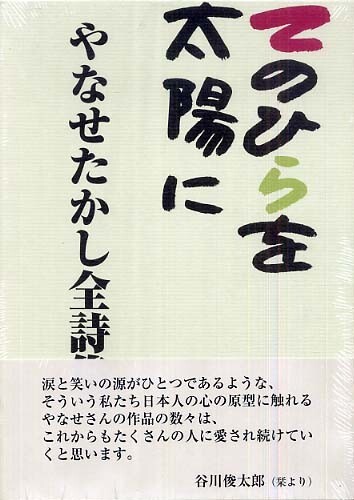 てのひらを
太陽に
やなせたかし全詩
涙と笑いの源がひとつであるような、
そういう私たち日本人の心の原型に触れる
やなせさんの作品の数々は、
これからもたくさんの人に愛され続けてい
くと思います。
谷川俊太郎（栞より）